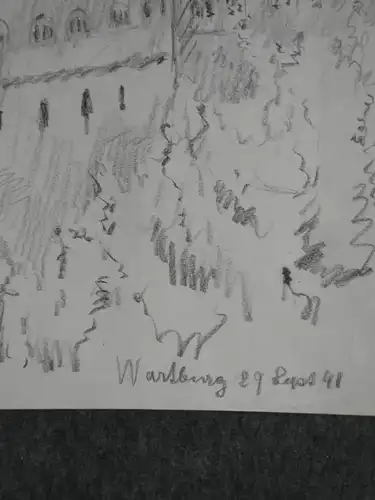 Wartburg 29 Sept 41